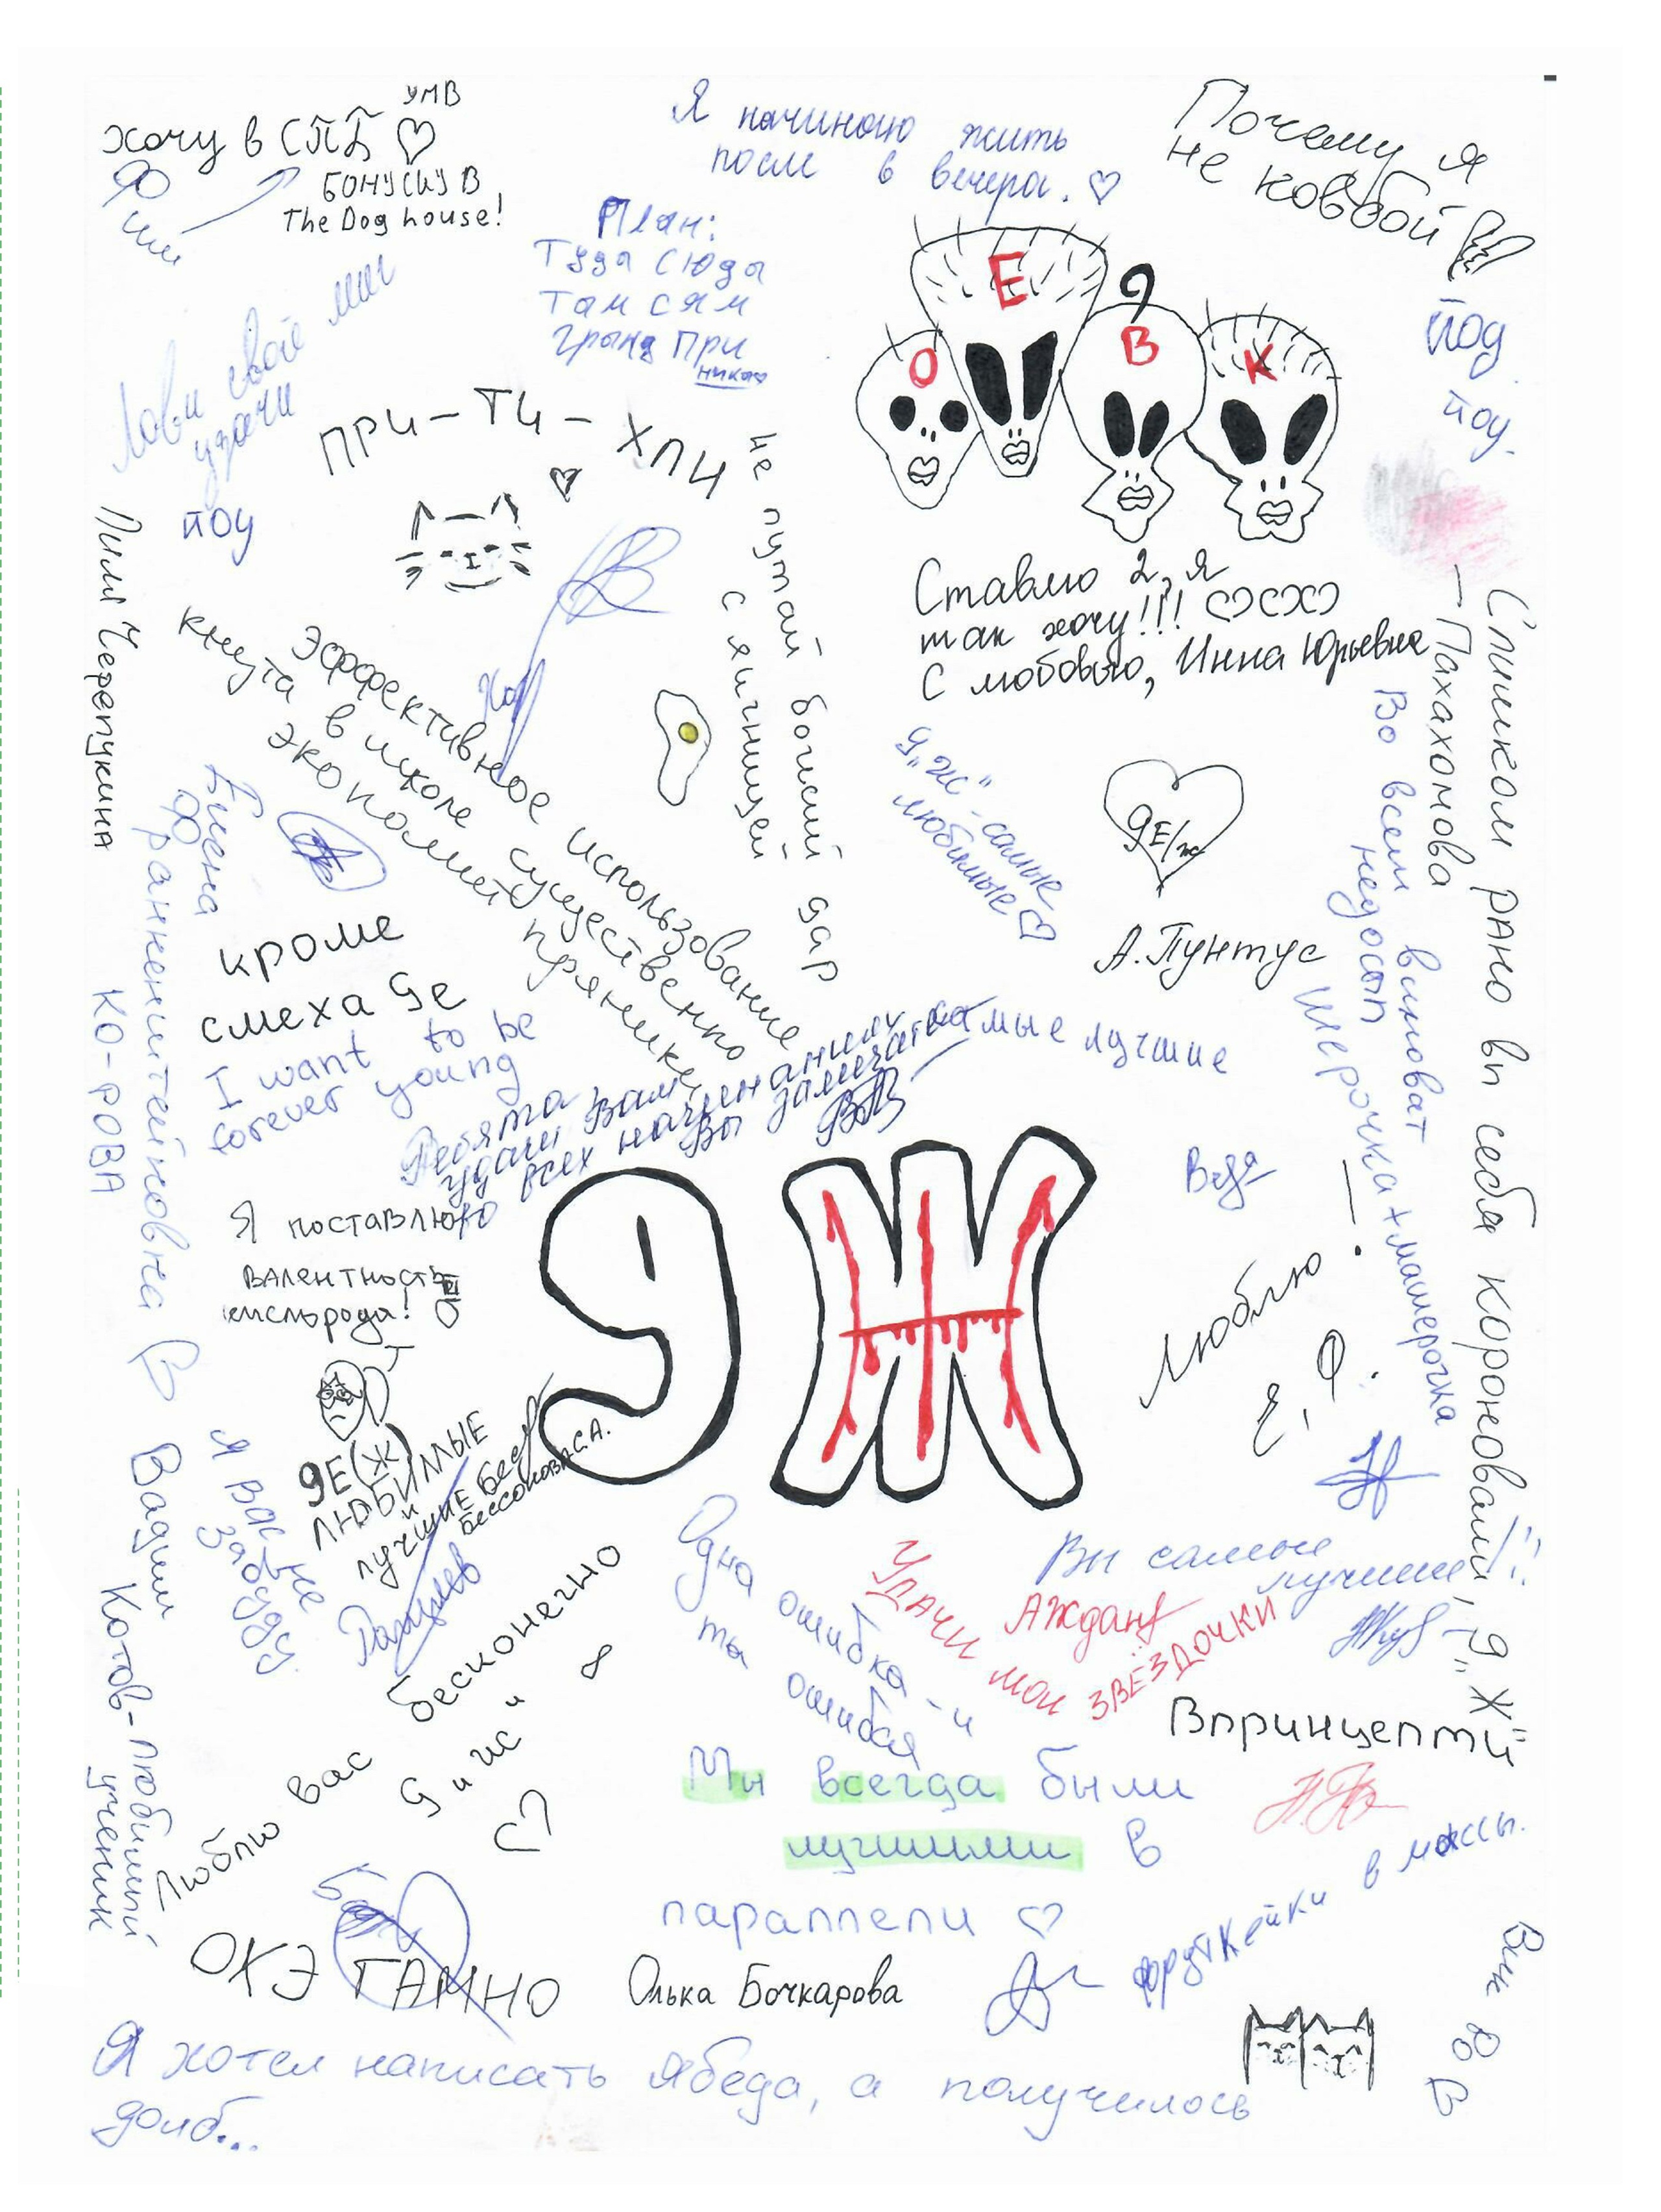 хочу в СПБ
УМВ
БОНУСКУ В
The Dog house!
Я начинаю жить
после 6 вечера.
Почему я
не ковбой
План:
Туда сюда
Там сям
Гранд При
никао
Лови свой миг
удачи
йоу
ПРИ-ТИ-ХЛИ
О
Е
9
В
К
йоу
йоу.
Ставлю 2, я
так хочу!!!
С любовью, Инна Юрьевна
Не путай богский дар
с яичницей
Лилия Черепукина
Эффективное использование
кнута в школе существенно
экономит пряники
9"Ж"-самые
любимые
9Е/ж
А. Пунтус
Слишком рано вы себя короновали, 9"Ж"
—Пахахонова
Во всем виноват
недосып
Шерочка+машерочка
кроме
смеха 9е
I want to be
forever young
КО-РОВА
Ребята
удачи Вам
во всех начинаниях
Вы замечат
самые лучшие
Я поставлю
валентность
кислорода!
II
O
9Ж
Люблю!
Е. Ф.
9Е(Ж)
ЛЮБИМЫЕ
и
ЛУЧШИЕ
Бессонова С.А.
Я Вас не
забуду
Вадим Котов-любимый
ученик
Люблю вас бесконечно
9 и ж и 8
Одна ошибка - и
ты ошибся
Удачи мои ЗВЁЗДОЧКИ
Вы самые
лучшие!!!
Впринцепти
Мы всегда были
лучшими в
параллели
фруткейки в массы.
ОХЭ ГАМНО
Олька Бочкарова
Я хотел написать Ябеда, а получилось
долб...